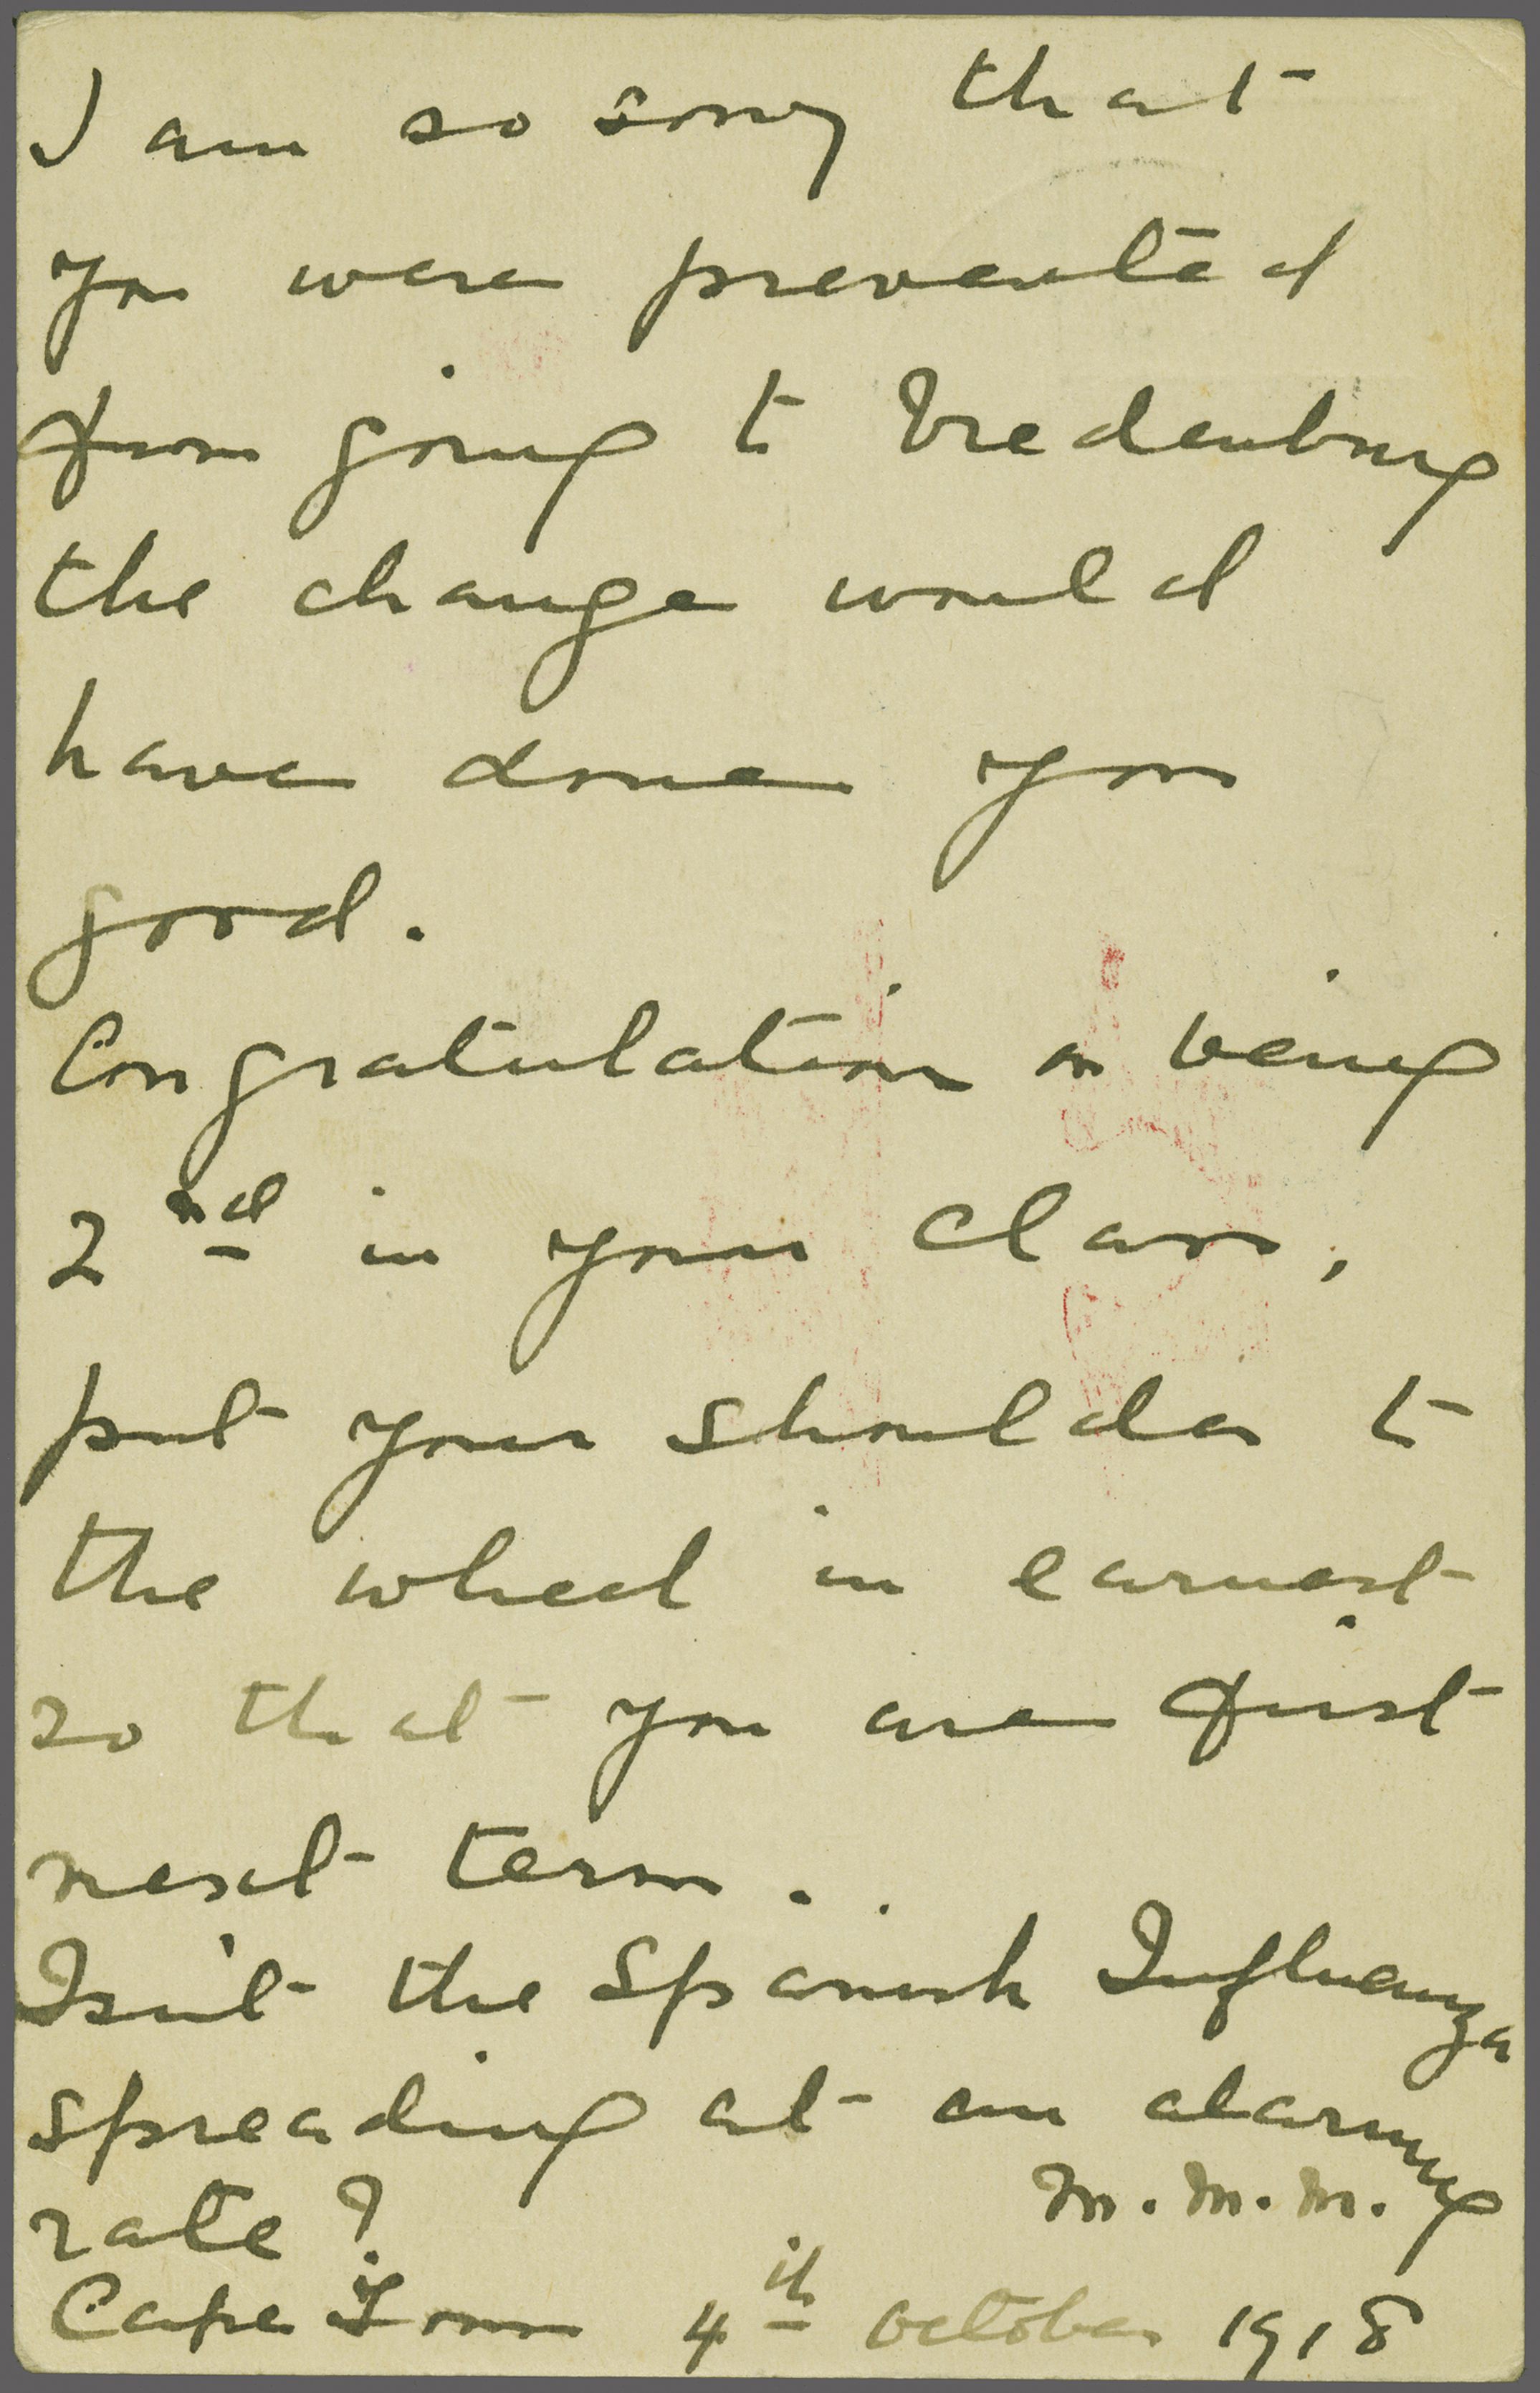 I am so sorry that
you were prevented
from going to Vredenburg
the change would
have done you
good.
Congratulation on being
2nd in your class,
put your shoulder to
the wheel in earnest
so that you are first
next term.
Isn't the Spanish Influenza
spreading at an alarming
rate?
M.M.M.
Cape Town 4th October 1918